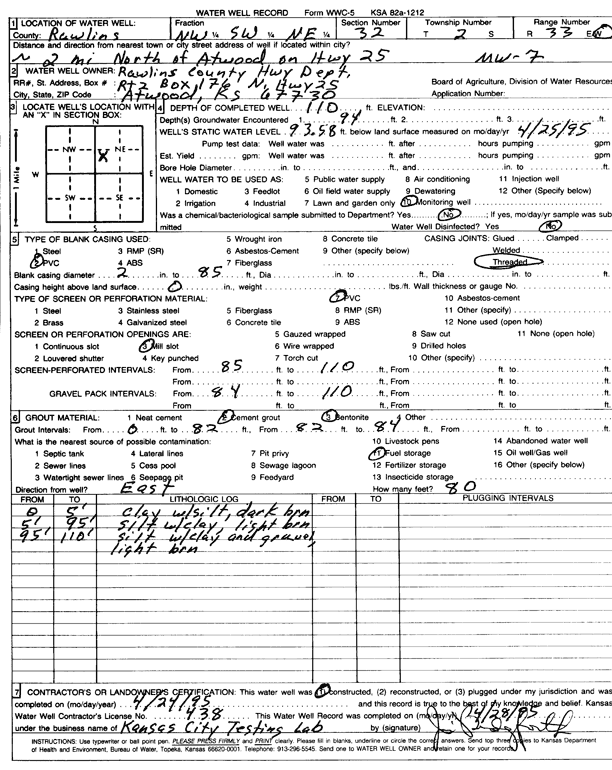 WATER WELL RECORD Form WWC-5 KSA 82a-1212
1 LOCATION OF WATER WELL: Fraction Section Number Township Number Range Number
County: Rawlins NW ¼ SW ¼ NE ¼ 32 T 2 S R 33 E/W
Distance and direction from nearest town or city street address of well if located within city?
~ 2 mi North of Atwood on Hwy 25 MW-7
2 WATER WELL OWNER: Rawlins County Hwy Dept,
RR#, St. Address, Box # : Rt 2 Box 176 N, Hwy 25 Board of Agriculture, Division of Water Resources
City, State, ZIP Code : Atwood, KS 67730 Application Number:
3 LOCATE WELL'S LOCATION WITH AN "X" IN SECTION BOX:
N
NW NE
X
W E
1 Mile
SW SE
S
4 DEPTH OF COMPLETED WELL 110 ft. ELEVATION:
Depth(s) Groundwater Encountered 1. 94 ft. 2. ft. 3. ft.
WELL'S STATIC WATER LEVEL 93.58 ft. below land surface measured on mo/day/yr 4/25/95
Pump test data: Well water was ft. after hours pumping gpm
Est. Yield gpm: Well water was ft. after hours pumping gpm
Bore Hole Diameter in. to ft., and in. to ft.
WELL WATER TO BE USED AS: 5 Public water supply 8 Air conditioning 11 Injection well
1 Domestic 3 Feedlot 6 Oil field water supply 9 Dewatering 12 Other (Specify below)
2 Irrigation 4 Industrial 7 Lawn and garden only 10 Monitoring well
Was a chemical/bacteriological sample submitted to Department? Yes No ; If yes, mo/day/yr sample was sub
mitted Water Well Disinfected? Yes No
5 TYPE OF BLANK CASING USED: 5 Wrought iron 8 Concrete tile CASING JOINTS: Glued Clamped
1 Steel 3 RMP (SR) 6 Asbestos-Cement 9 Other (specify below) Welded
2 PVC 4 ABS 7 Fiberglass Threaded
Blank casing diameter 2 in. to 85 ft., Dia in. to ft., Dia in. to ft.
Casing height above land surface 0 in., weight lbs./ft. Wall thickness or gauge No.
TYPE OF SCREEN OR PERFORATION MATERIAL: 7 PVC 10 Asbestos-cement
1 Steel 3 Stainless steel 5 Fiberglass 8 RMP (SR) 11 Other (specify)
2 Brass 4 Galvanized steel 6 Concrete tile 9 ABS 12 None used (open hole)
SCREEN OR PERFORATION OPENINGS ARE: 5 Gauzed wrapped 8 Saw cut 11 None (open hole)
1 Continuous slot 3 Mill slot 6 Wire wrapped 9 Drilled holes
2 Louvered shutter 4 Key punched 7 Torch cut 10 Other (specify)
SCREEN-PERFORATED INTERVALS: From 85 ft. to 110 ft., From ft. to ft.
From ft. to ft., From ft. to ft.
GRAVEL PACK INTERVALS: From 84 ft. to 110 ft., From ft. to ft.
From ft. to ft., From ft. to ft.
6 GROUT MATERIAL: 1 Neat cement 2 Cement grout 3 Bentonite 4 Other
Grout Intervals: From 0 ft. to 82 ft., From 82 ft. to 84 ft., From ft. to ft.
What is the nearest source of possible contamination: 10 Livestock pens 14 Abandoned water well
1 Septic tank 4 Lateral lines 7 Pit privy 11 Fuel storage 15 Oil well/Gas well
2 Sewer lines 5 Cess pool 8 Sewage lagoon 12 Fertilizer storage 16 Other (specify below)
3 Watertight sewer lines 6 Seepage pit 9 Feedyard 13 Insecticide storage
Direction from well? East How many feet? 80
FROM TO LITHOLOGIC LOG FROM TO PLUGGING INTERVALS
0 5' clay w/silt, dark brn
5' 95' silt w/clay, light brn
95' 110' silt w/clay and gravel,
light brn
7 CONTRACTOR'S OR LANDOWNER'S CERTIFICATION: This water well was (1) constructed, (2) reconstructed, or (3) plugged under my jurisdiction and was
completed on (mo/day/year) 4/24/95 and this record is true to the best of my knowledge and belief. Kansas
Water Well Contractor's License No. 438 This Water Well Record was completed on (mo/day/yr) 4/28/95
under the business name of Kansas City Testing Lab by (signature)
INSTRUCTIONS: Use typewriter or ball point pen. PLEASE PRESS FIRMLY and PRINT clearly. Please fill in blanks, underline or circle the correct answers. Send top three copies to Kansas Department
of Health and Environment, Bureau of Water, Topeka, Kansas 66620-0001. Telephone: 913-296-5545. Send one to WATER WELL OWNER and retain one for your records.